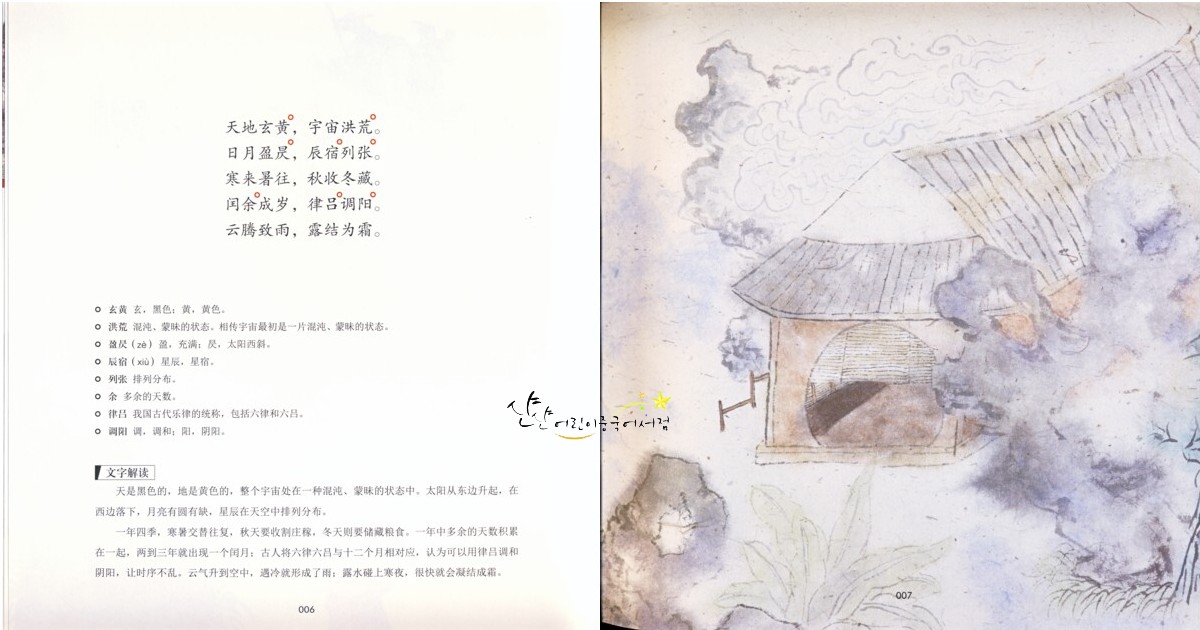 天地玄黄，宇宙洪荒。
日月盈昃，辰宿列张。
寒来暑往，秋收冬藏。
闰余成岁，律吕调阳。
云腾致雨，露结为霜。
玄黄 玄，黑色；黄，黄色。
洪荒 混沌、蒙昧的状态。相传宇宙最初是一片混沌、蒙昧的状态。
盈昃（zè）盈，充满；昃，太阳西斜。
辰宿（xiù）星辰，星宿。
列张 排列分布。
余 多余的天数。
律吕 我国古代乐律的统称，包括六律和六吕。
调阳 调，调和；阳，阴阳。
文字解读
天是黑色的，地是黄色的，整个宇宙处在一种混沌、蒙昧的状态中。太阳从东边升起，在
西边落下，月亮有圆有缺，星辰在天空中排列分布。
一年四季，寒暑交替往复，秋天要收割庄稼，冬天则要储藏粮食。一年中多余的天数积累
在一起，两到三年就出现一个闰月；古人将六律六吕与十二个月相对应，认为可以用律吕调和
阴阳，让时序不乱。云气升到空中，遇冷就形成了雨；露水碰上寒夜，很快就会凝结成霜。
006
샨샨어린이중국어서점
007